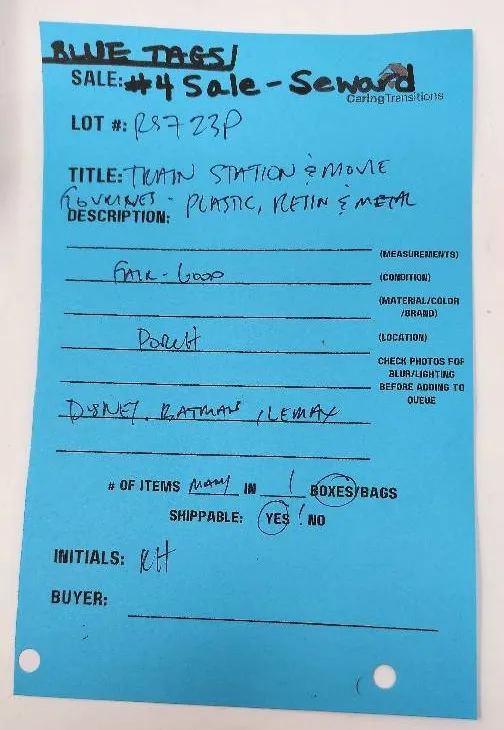 BLUE TAGS/
SALE: #4 Sale - Seward
CaringTransitions
LOT #: RS723P
TITLE: TRAIN STATION & MOVIE
FIGURINES - PLASTIC, RESIN & METAL
DESCRIPTION:
(MEASUREMENTS)
FAIR - GOOD (CONDITION)
(MATERIAL/COLOR
/BRAND)
PORCH (LOCATION)
CHECK PHOTOS FOR
BLUR/LIGHTING
BEFORE ADDING TO
QUEUE
DISNEY, BATMAN, LEMAX
# OF ITEMS MANY IN 1 BOXES/BAGS
SHIPPABLE: YES / NO
INITIALS: RH
BUYER: